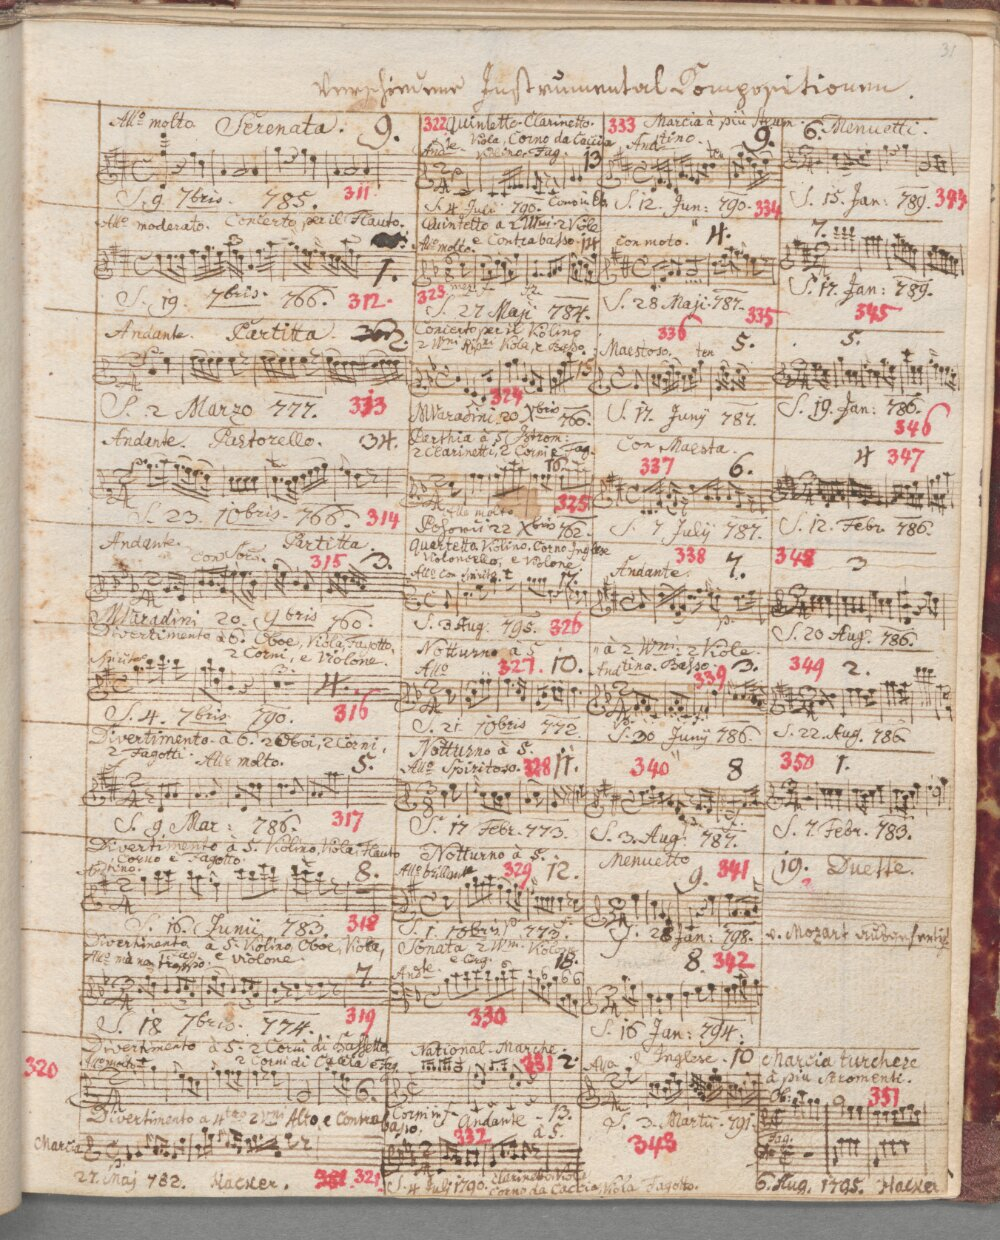 31
Verschiedene Instrumental Compositionen.
All.º molto. Serenata. 9.
S. 9. 7bris. 785. 311
All.º moderato. Concerto, per il Flauto.
1.
S. 19. 7bris. 766. 312.
Andante. Partitta. 2.
S. 2 Marzo 777. 313
Andante. Pastorello. 34.
S. 23. 10bris. 766. 314
Andante. Partitta
con Sord. 315 3.
Waradini 20. 9bris 760.
Divertimento à 6. Oboe, Viola, Fagotto,
2 Corni, e Violone.
Spiritoso
4.
S. 4. 7bris 790. 316
Divertimento à 6. 2 Oboi, 2 Corni,
2 Fagotti. All.º molto. 5.
S. 9. Mar: 786. 317
Divertimento à 5. Violino, Viola, Flauto
Corno e Fagotto. 8.
S. 16. Junii 783. 318
Divertimento à 5. Violino, Oboe, Viola,
e Violone.
All.º mà non troppo. 7.
S. 18 7bris. 774. 319
320
Divertimento à 5. 2 Corni di Bassetto
2 Corni di Caccia e Fag.
6.
Divertimento à 4tro 2 Vni Alto e Contra
basso.
Marcia
27. Maj 782. Hacker. 321
322 Quintetto. Clarinetto.
Viola, Corno da Caccia
Violino, Fag. 13
And.e
S. 4 Juli 790. Corno in Es
Quintetto à 2 Wni 2 Viole
e Contrabasso. 14
All.º molto.
323.
S. 27 Maji 784.
Concerto per il Violino
2 Wni Ripni Viola, e Basso.
15
324
Waradini 20 Xbris 766.
Parthia à 5 Istrom:
2 Clarinetti, 2 Corni e Fag.
16.
All.º molto 325
Posonii 22 Xbris 762.
Quartetto Violino, Corno Inglese
Violoncello, e Violone.
All.º con Spirito. 17.
S. 3 Aug. 795. 326
Notturno à 5
All.º 327. 10.
S. 21 10bris 772.
Notturno à 5.
All.º Spiritoso. 328 11.
S. 17 Febr. 773.
Notturno à 5.
All.º brillante 329 12.
S. 1. 10bris 773.
Sonata, 2 Wni Violone
e Org. 18.
And.te
330
National-Marche.
331 2.
Corni in f Andante - 13.
332 à 5.
S. 4 Juli 1790. Clarinetto, Violino
Corno da Caccia, Viola Fagotto.
333 Marcia à più Strum.
Andstino. ten 9.
S. 12. Jun: 790. 334
con moto. 4.
S. 28 Maji 787. 335
336
Maestoso. ten 5.
S. 17. Junij 787.
Con Maesta.
337 6.
S. 7 Julij 787.
338
Andante. 7.
à 2 Wni: 2 Viole.
Andtino. Basso. 3.
339
S. 30 Junij 786
340 8
S. 3. Aug: 787.
Menuetto
9. 341
S. 28 Jan: 798.
8. 342
S. 16 Jan: 794.
Inglese. 10
S. 3. Martii. 791.
343
6. Menuetti.
S. 15. Jan: 789. 343
7.
S. 17. Jan: 789.
345
5.
S. 19. Jan: 786.
346
4 347
S. 12. Febr 786.
348 3
S. 20 Aug. 786.
349 2.
S. 22. Aug. 786
350 1.
S. 7. Febr. 783.
19. Duette.
v. Mozart
Marcia turchese
à più Stromenti.
Ob: 351
Fag.
6. Aug. 1795. Hacker